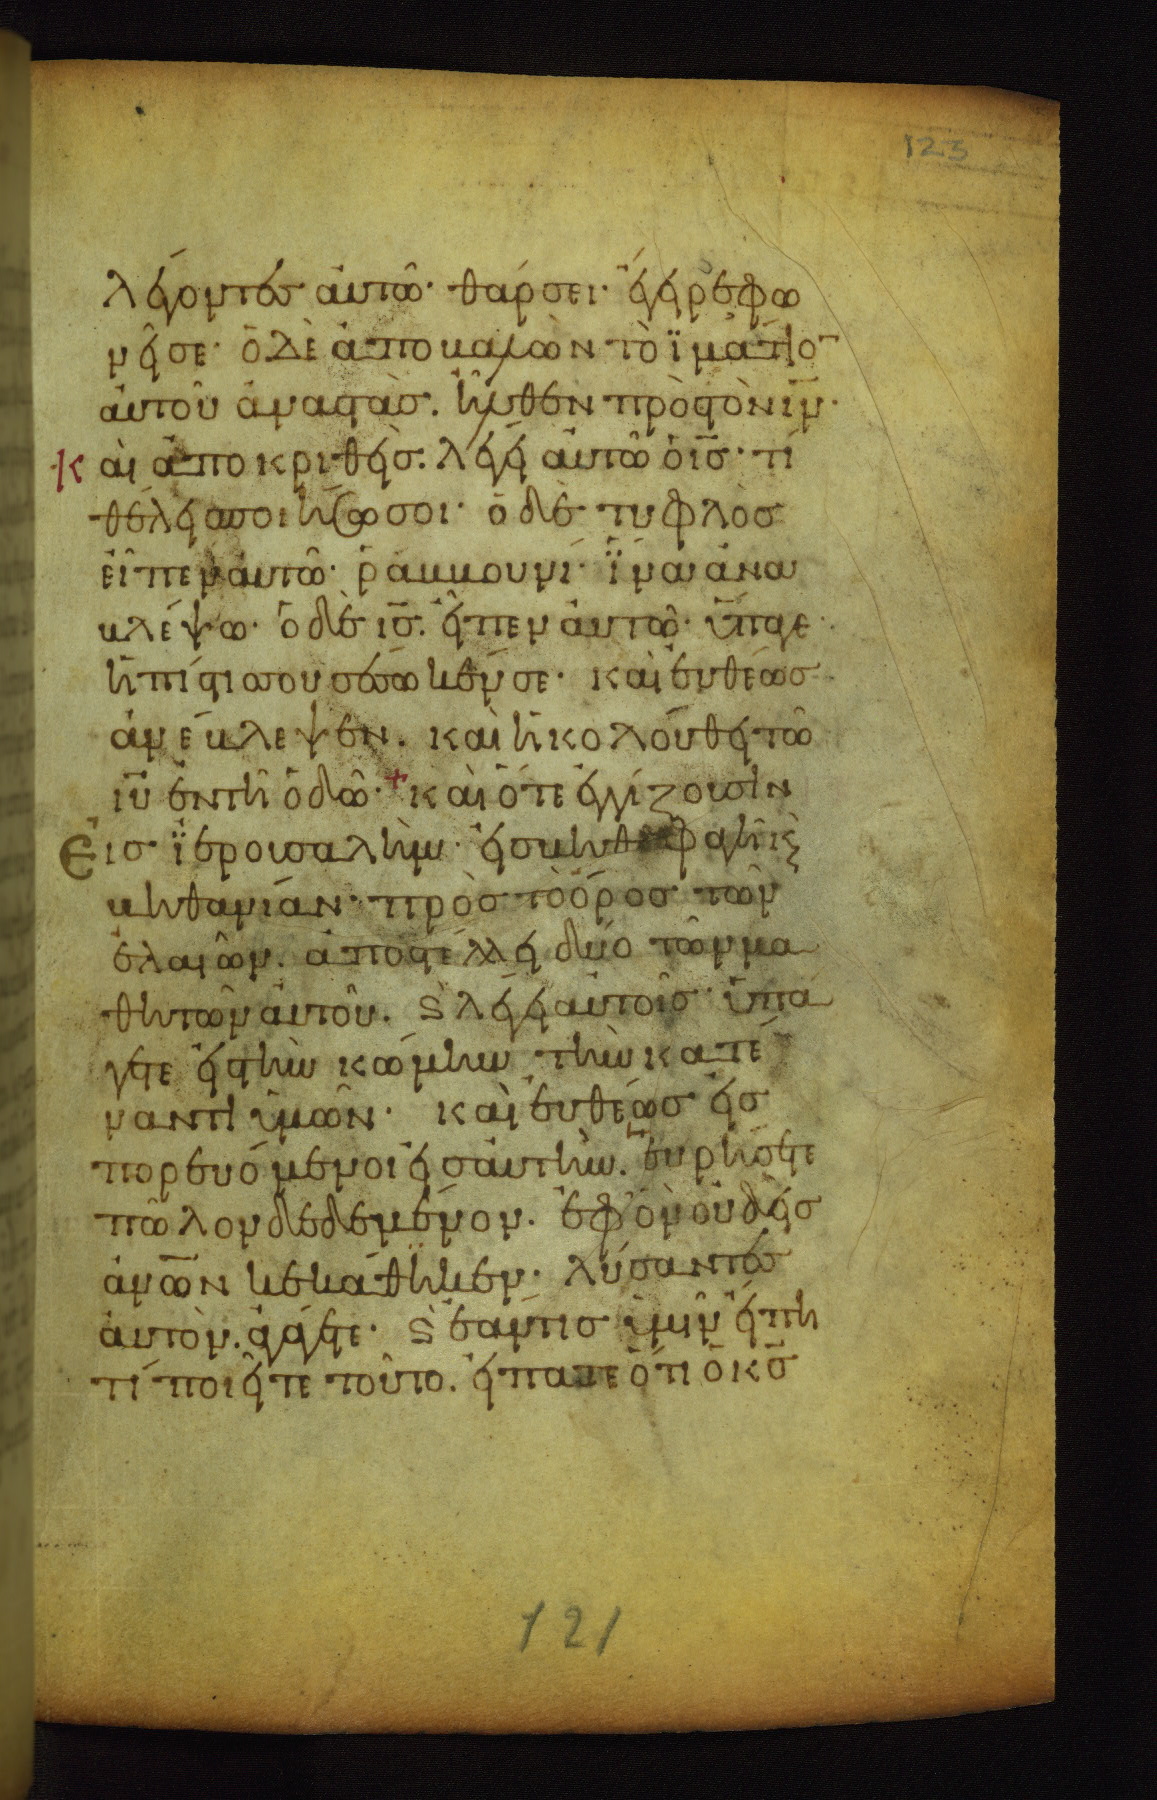 123
λέγοντες αὐτῶ· θάρσει· ἔγειρε φω
νεῖ σε· ὁ δὲ ἀποβαλὼν τὸ ἱμάτιο
αὐτοῦ ἀναστὰς. ἦλθεν πρὸς τὸν ἰν·
Καὶ ἀποκριθεὶς. λέγει αὐτῶ ὁ ις· τί
θέλεις ποιήσω σοι· ὁ δὲ τυφλὸς
εἶπεν αὐτῶ· ῥαββουνί· ἵνα ἀνα
βλέψω· ὁ δὲ ις. εἶπεν αὐτῶ· ὕπαγε·
ἡ πίστις σου σέσωκέν σε· καὶ εὐθέως
ἀνέβλεψεν. καὶ ἠκολούθει τῶ
ιυ ἐν τῆ ὁδῶ· + καὶ ὅτε ἐγγίζουσιν
Εἰς ἱερουσαλὴμ· εἰς βηθσφαγῆ κ
βηθανίαν· πρὸς τὸ ὄρος τῶν
ἐλαιῶν. ἀποστέλλει δύο τῶν μα
θητῶν αὐτοῦ. ϛ λέγει αὐτοῖς ὑπά
γετε εἰς τὴν κώμην τὴν κατέ
ναντι ὑμῶν· καὶ εὐθέως εἰς
πορευόμενοι εἰς αὐτὴν. εὑρήσετε
πῶλον δεδεμένον. ἐφ' ὃν οὐδεὶς
ἀνων κεκάθηκεν· λύσαντες
αὐτὸν. ἀγάγετε· ϛ ἐάν τις ὑμῖν εἴπη
τί ποιεῖτε τοῦτο. εἴπατε ὅτι ὁ κς
121